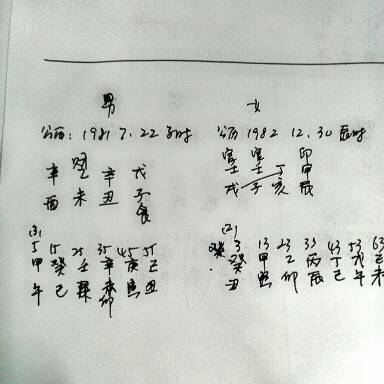 男
公历: 1981 7. 22 子时
辛 乙 辛 戊
酉 未 丑 子
食
5 15 25 35 45 55
甲 癸 壬 辛 庚 己
午 巳 辰 卯 寅 丑
女
公历 1982 12. 30 辰时
官 官 印
壬 壬 丁 甲
戌 子 亥 辰
(2)
3 13 23 33 43 53 63
癸 甲 乙 丙 丁 戊 己
丑 寅 卯 辰 巳 午 未